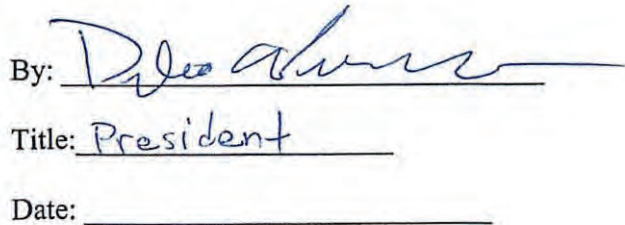 By:
Title: President
Date: